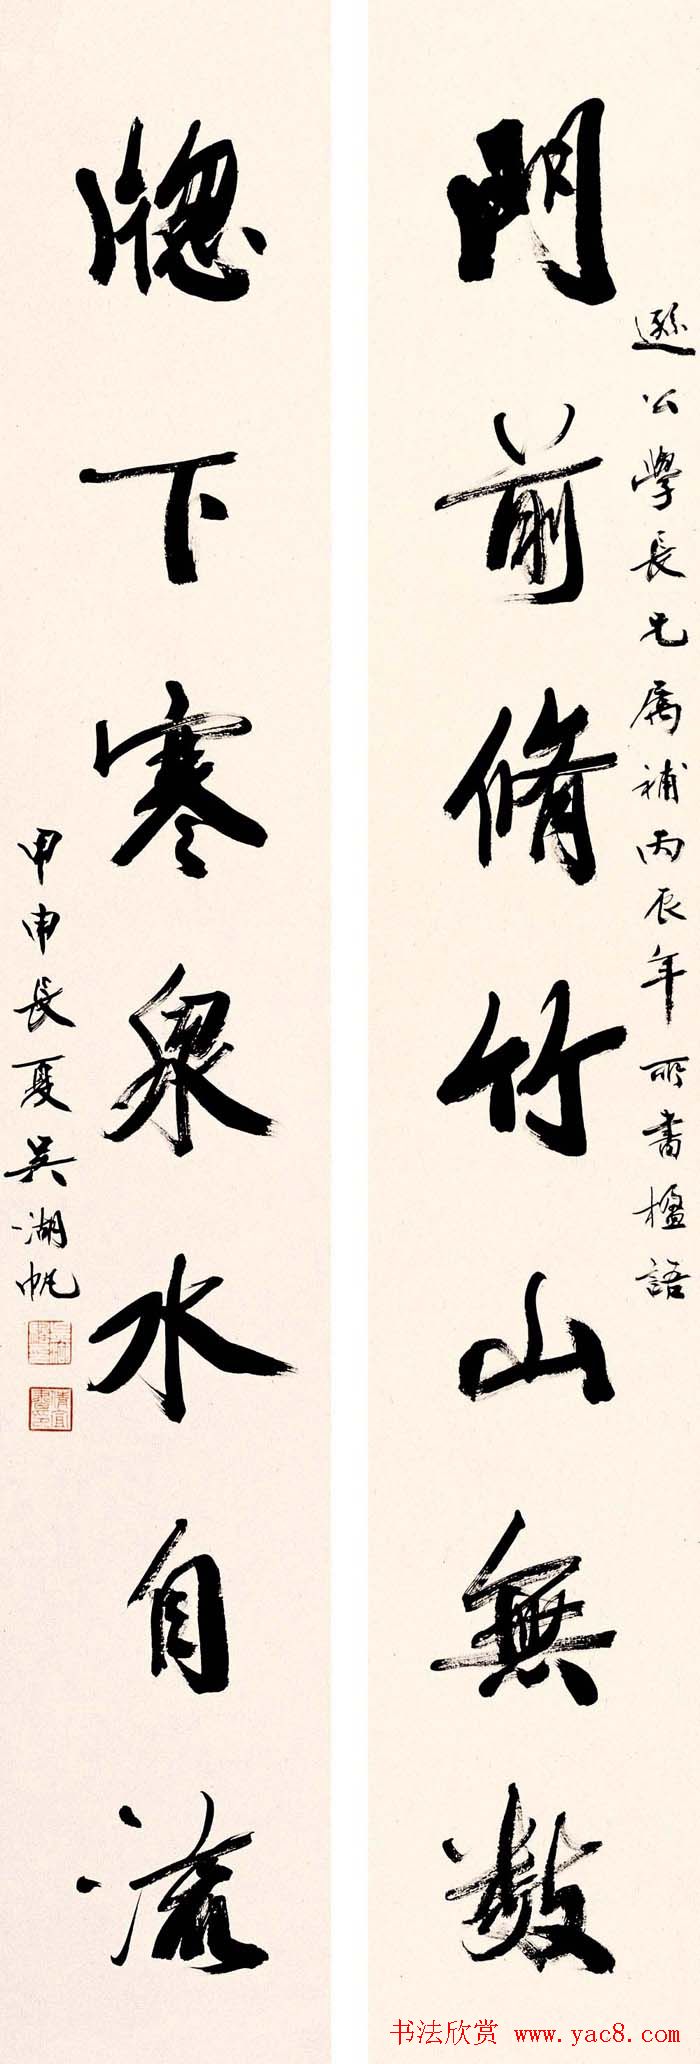 門前脩竹山無數
遜公學長兄属補丙辰年所書楹語
牕下寒泉水自流
甲申長夏吳湖帆
书法欣赏 www.yac8.com